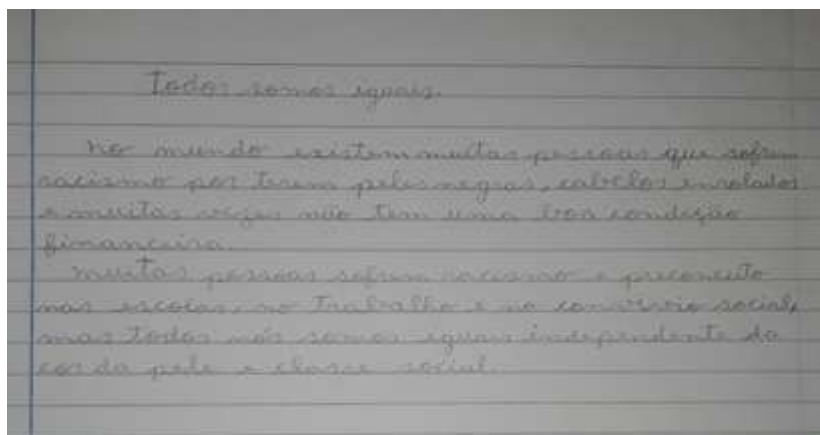 Todos somos iguais.
no mundo existem muitas pessoas que sofrem
racismo por terem peles negras, cabelos enrolados
e muitas vezes não tem uma boa condição
financeira.
muitas pessoas sofrem racismo e preconceito
nas escolas, no Trabalho e no convívio social,
mas Todos nós somos iguais independente da
cor da pele e classe social.